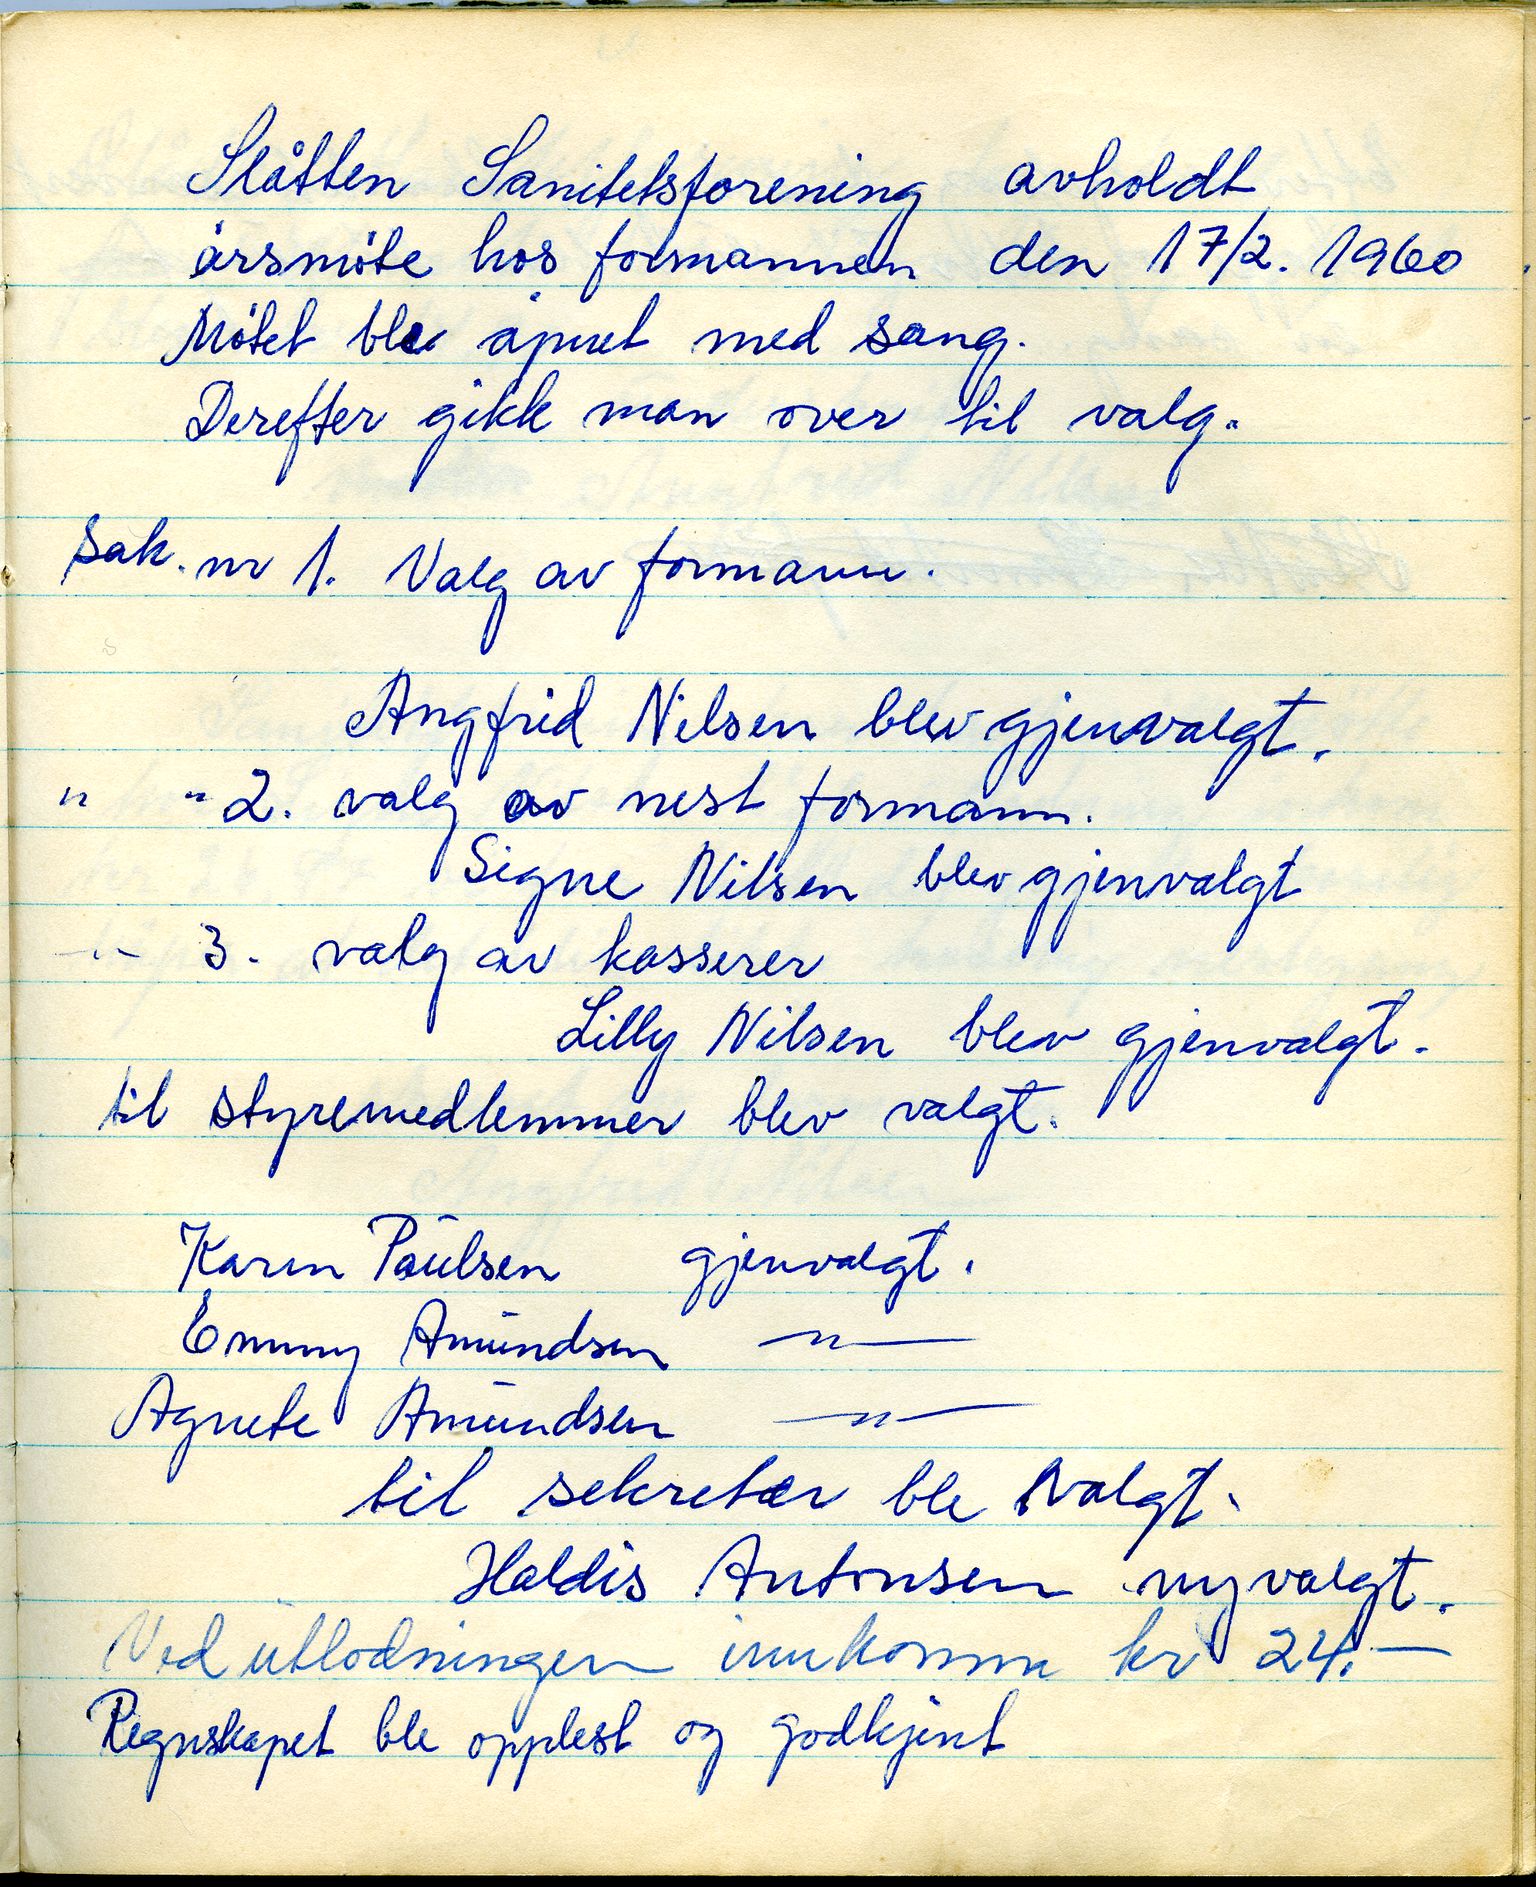 Slåtten Sanitetsforening avholdt
årsmøte hos formannen den 17/2. 1960
Møtet ble åpnet med sang.
Derefter gikk man over til valg.
Sak. nr 1. Valg av formann.
Angfrid Nilsen blev gjenvalgt.
" " 2. valg av nest formann.
Signe Nilsen blev gjenvalgt
-"- 3. valg av kasserer
Lilly Nilsen blev gjenvalgt.
til styremedlemmer blev valgt.
Karen Paulsen gjenvalgt.
Emmy Amundsen —"—
Agnete Amundsen —"—
til sekretær ble valgt.
Haldis Antonsen nyvalgt.
Ved utlodningen innkomm kr 24.—
Regnskapet ble opplest og godkjent